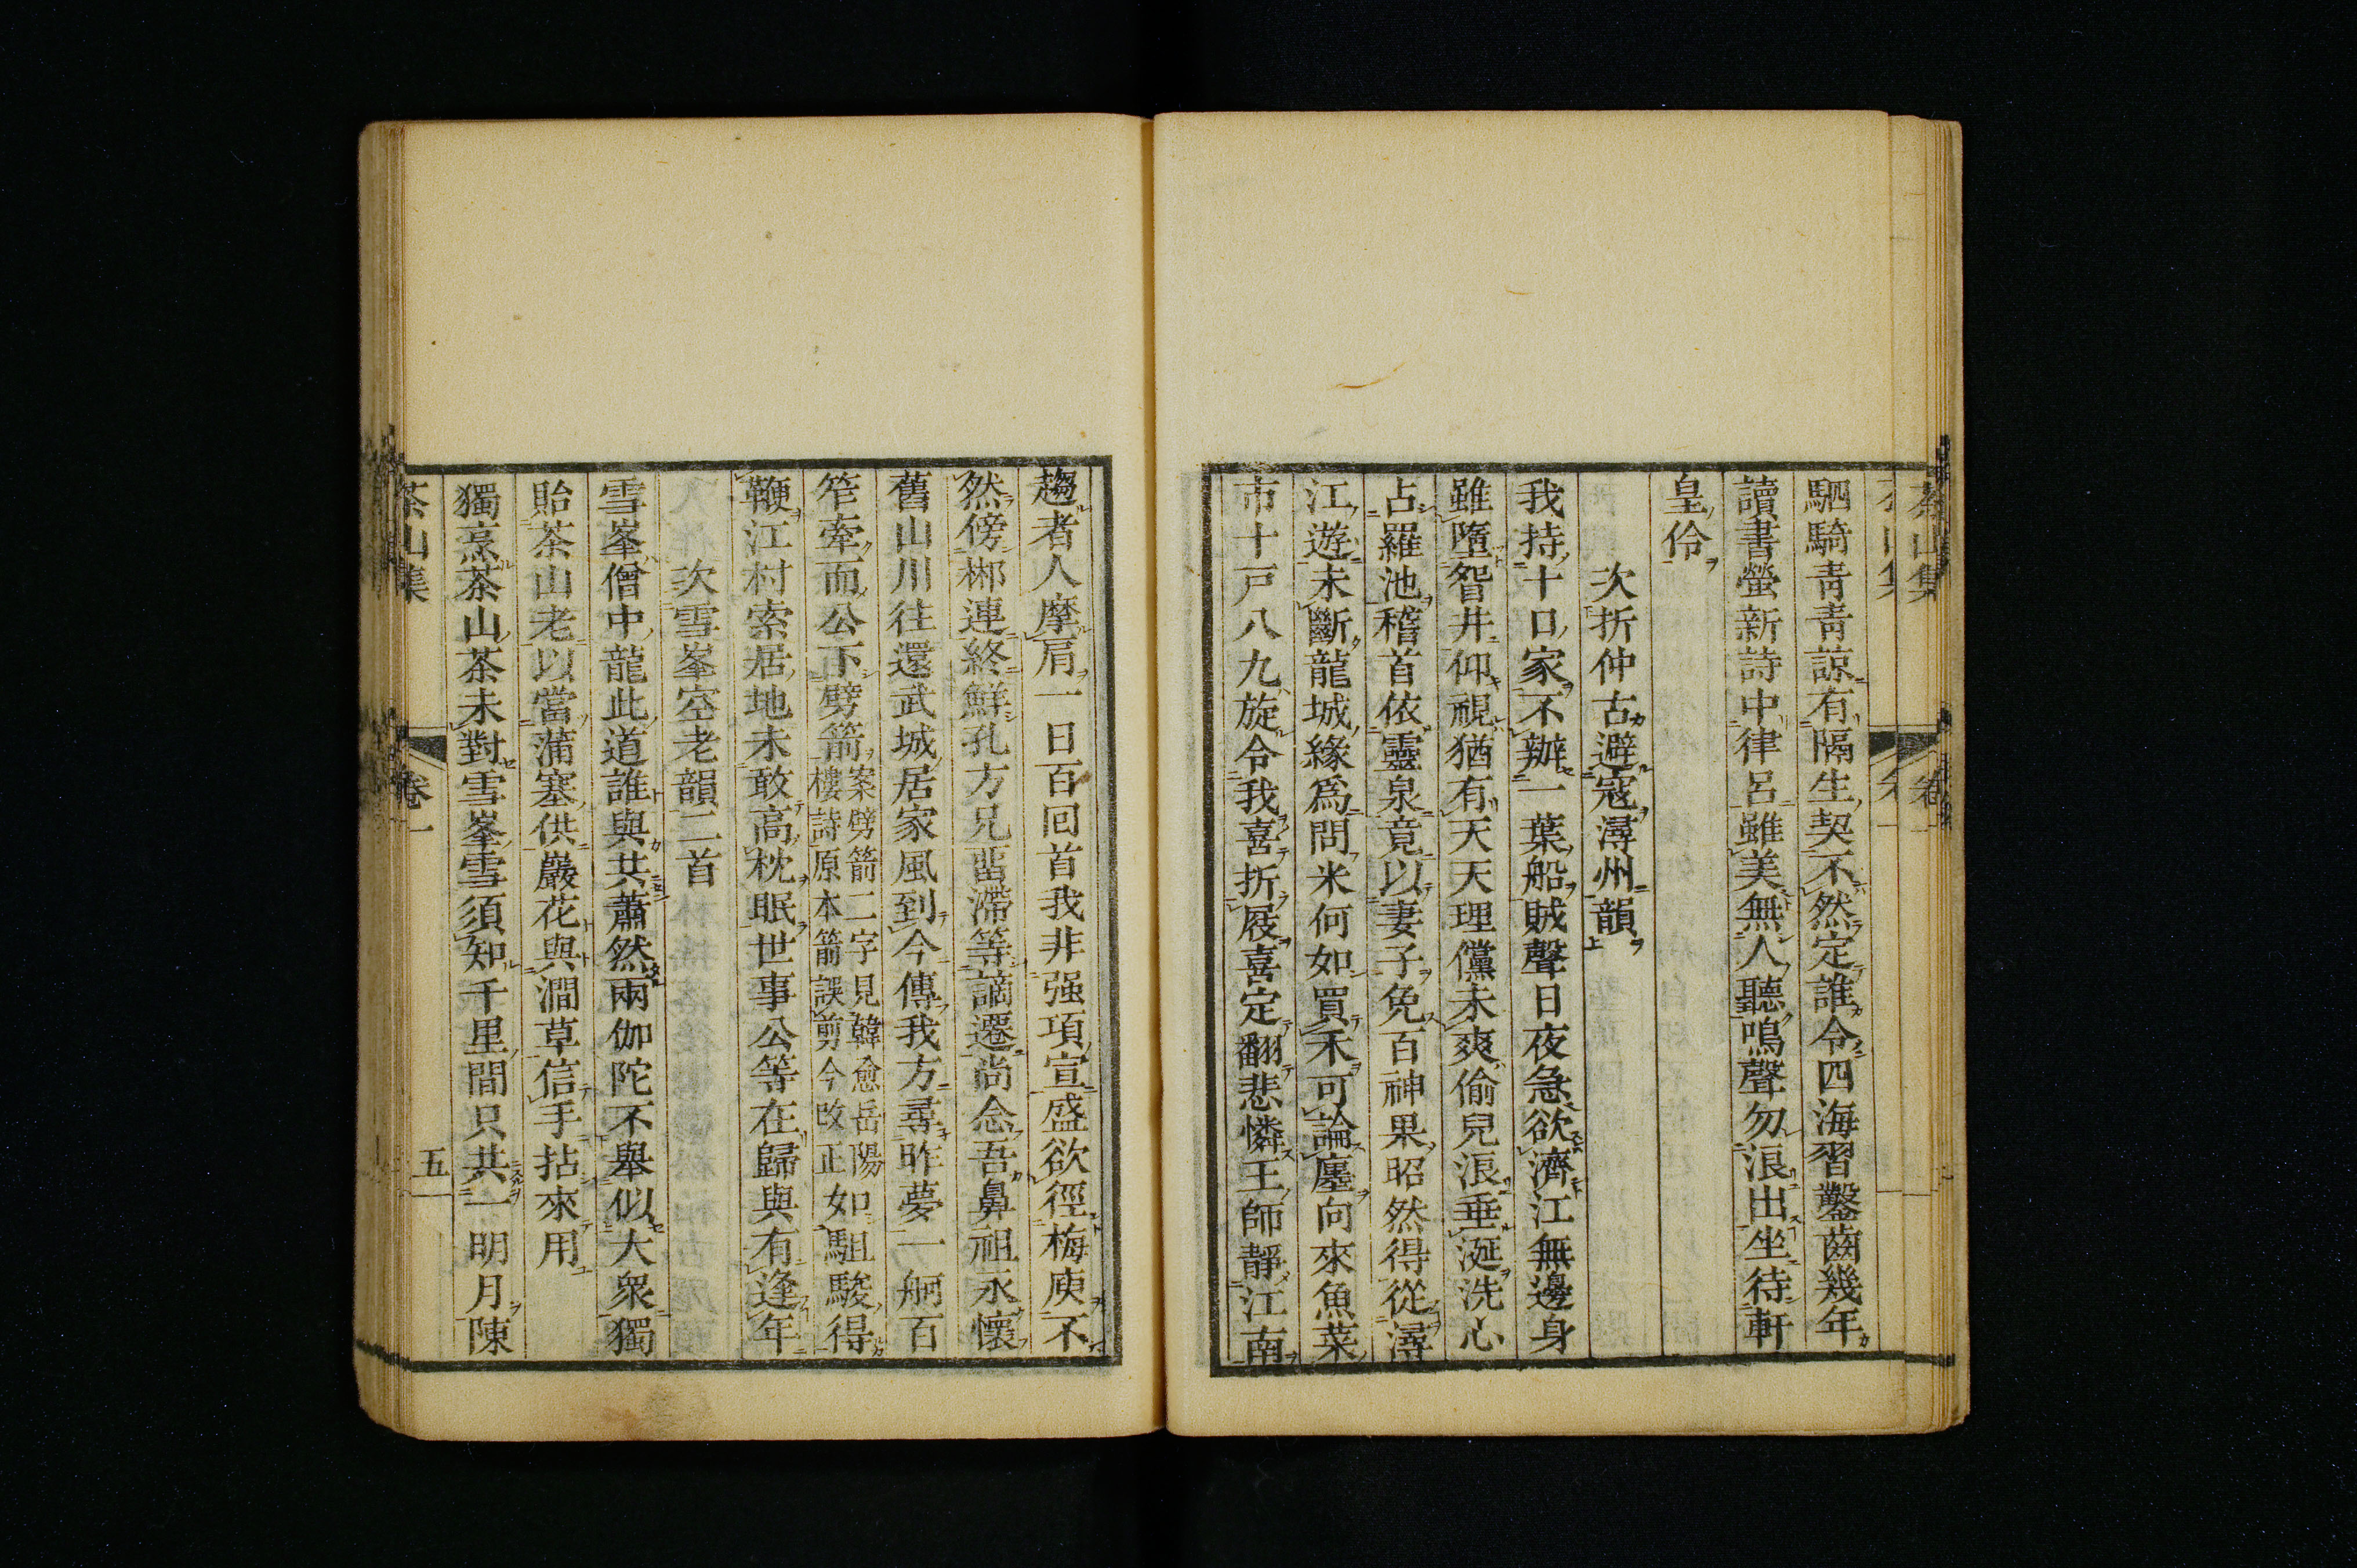 茶山集
卷
駟騎青青諒有隔生契不然定誰令四海習鑿齒幾年
讀書螢新詩中律呂雖美無人聽鳴聲勿浪出坐待軒
皇伶
次折仲古避寇潯州韻
我持十口家不辦一葉船賊聲日夜急欲濟江無邊身
雖墮眢井仰視猶有天天理儻未爽偷兒浪垂涎洗心
占羅池稽首依靈泉竟以妻子免百神果昭然得從潯
江遊未斷龍城緣爲問米何如買禾可論廛向來魚菜
市十戸八九旋令我喜折屐喜定翻悲憐王師靜江南
趨者人摩肩一日百回首我非强項宣盛欲徑梅庾不
然傍郴連終鮮孔方兄畱滯等謫遷尚念吾鼻祖永懷
舊山川往還武城居家風到今傳我方尋昨夢一舸百
笮牽而公下劈箭案劈箭二字見韓愈岳陽樓詩原本箭誤剪今改正如駔駿得
鞭江村索居地未敢高枕眠世事公等在歸與有逢年
次雪峯空老韻二首
雪峯僧中龍此道誰與共蕭然兩伽陀不舉似大衆獨
貽茶山老以當蒲塞供巖花與澗草信手拈來用
獨烹茶山茶未對雪峯雪須知千里間只共一明月陳
茶山集
卷一
五